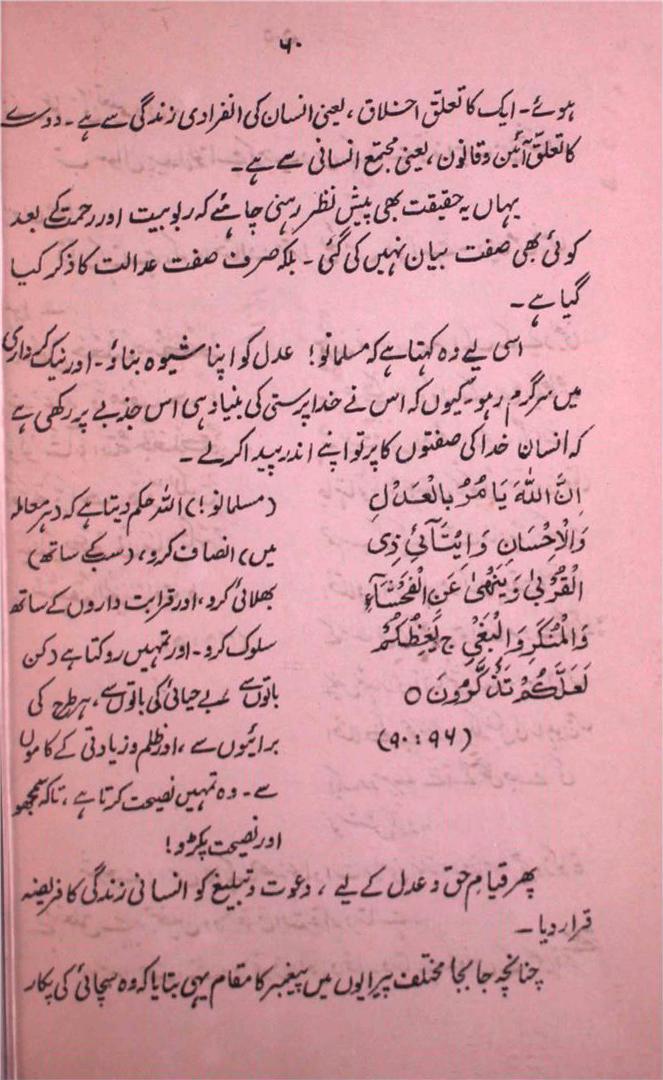 ۶۰
ہوئے۔ ایک کا تعلق اخلاق، یعنی انسان کی انفرادی زندگی سے ہے۔ دوسرے
کا تعلق آئین و قانون، یعنی مجتمع انسانی سے ہے۔
یہاں یہ حقیقت بھی پیش نظر رہنی چاہئے کہ ربوبیت اور رحمت کے بعد
کوئی بھی صفت بیان نہیں کی گئی۔ بلکہ صرف صفت عدالت کا ذکر کیا
گیا ہے۔
اسی لیے وہ کہتا ہے کہ مسلمانو! عدل کو اپنا شیوہ بناؤ۔ اور نیک کرداری
میں سرگرم رہو۔ کیوں کہ اس نے خدا پرستی کی بنیاد ہی اس جذبے پر رکھی ہے
کہ انسان خدا کی صفتوں کا پرتو اپنے اندر پیدا کرلے۔
اِنَّ اللّٰہَ یَامُرُ بِالْعَدْلِ
وَالْاِحْسَانِ وَاِیْتَآئِ ذِی
الْقُرْبٰی وَیَنْھٰی عَنِ الْفَحْشَآءِ
وَالْمُنْکَرِ وَالْبَغْیِ ج یَعِظُکُمْ
لَعَلَّکُمْ تَذَکَّرُوْنَ ○
(۹۰:۹۶)
(مسلمانو!) اللہ حکم دیتا ہے کہ (ہر معاملہ
میں) انصاف کرو، (سب کے ساتھ)
بھلائی کرو، اور قرابت داروں کے ساتھ
سلوک کرو۔ اور تمہیں روکتا ہے (کن
باتوں سے بے حیائی کی باتوں سے، ہر طرح کی
برائیوں سے، اور ظلم و زیادتی کے کاموں
سے۔ وہ تمہیں نصیحت کرتا ہے، تاکہ سمجھو
اور نصیحت پکڑو!
پھر قیام حق و عدل کے لیے، دعوت و تبلیغ کو انسانی زندگی کا فریضہ
قرار دیا۔
چنانچہ جا بجا مختلف پیرایوں میں پیغمبر کا مقام یہی بتایا کہ وہ سچائی کی پکار